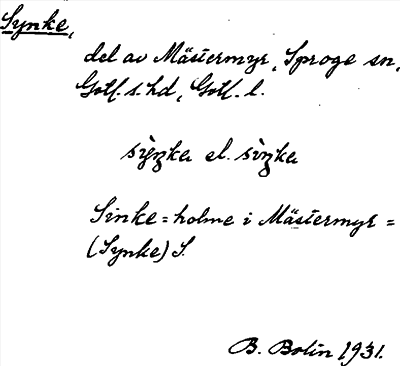 Synke,
del av Mästermyr, Sproge sn,
Gotl. s. hd, Gotl. l.
sỳŋka el. sìŋka
Sinke=holme i Mästermyr=
(Synke) S.
B. Bolin 1931.